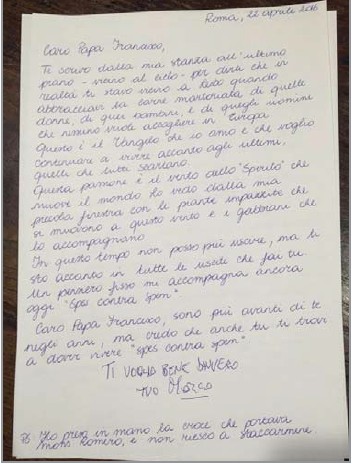 Roma, 22 aprile 2016
Caro Papa Francesco,
Ti scrivo dalla mia stanza all'ultimo
piano - vicino al cielo - per dirti che in
realtà ti stavo vicino a Lesbo quando
abbracciavi la carne martoriata di quelle
donne, di quei bambini, e di quegli uomini
che nessuno vuole accogliere in Europa
Questo è il Vangelo che io amo e che voglio
continuare a vivere accanto agli ultimi,
quelli che tutti scartano.
Questa passione è il vento dello "Spirito" che
muove il mondo lo vedo dalla mia
piccola finestra con le piante impazzite che
si muovono a questo vento e i gabbiani che
lo accompagnano
In questo tempo non posso più uscire, ma ti
sto accanto in tutte le uscite che fai tu
Un pensiero fisso mi accompagna ancora
oggi "Spes contra spem"
Caro Papa Francesco, sono più avanti di te
negli anni, ma credo che anche tu ti trovi
a dover vivere "spes contra spem"
TI VOGLIO BENE DAVVERO
TUO Marco
PS Ho preso in mano la croce che portava
mons. Romero, e non riesco a staccarmene.